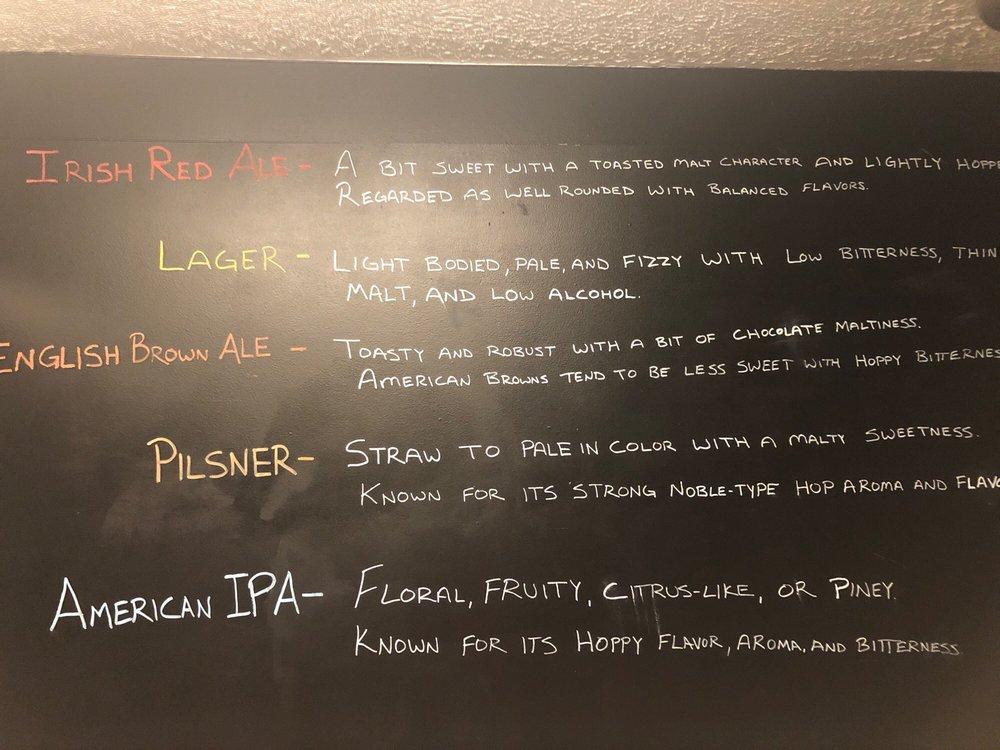 IRISH RED ALE - A BIT SWEET WITH A TOASTED MALT CHARACTER AND LIGHTLY HOPPE
REGARDED AS WELL ROUNDED WITH BALANCED FLAVORS.
LAGER - LIGHT BODIED, PALE, AND FIZZY WITH LOW BITTERNESS, THIN
MALT, AND LOW ALCOHOL.
ENGLISH BROWN ALE - TOASTY AND ROBUST WITH A BIT OF CHOCOLATE MALTINESS.
AMERICAN BROWNS TEND TO BE LESS SWEET WITH HOPPY BITTERNES
PILSNER - STRAW TO PALE IN COLOR WITH A MALTY SWEETNESS.
KNOWN FOR ITS STRONG NOBLE-TYPE HOP AROMA AND FLAVO
AMERICAN IPA - FLORAL, FRUITY, CITRUS-LIKE, OR PINEY.
KNOWN FOR ITS HOPPY FLAVOR, AROMA, AND BITTERNESS.